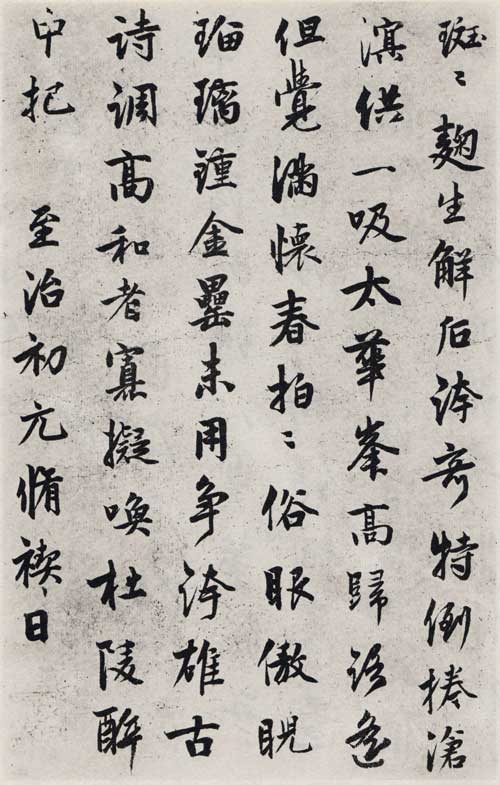 斑〻麴生解后誇奇特倒捲滄
溟供一吸太華峯高歸路遙
但覺滿懷春拍〻俗眼傲睨
瑠璃鍾金罍未用争誇雄古
詩調高和者寡擬喚杜陵醉
中把 至治初元脩禊日